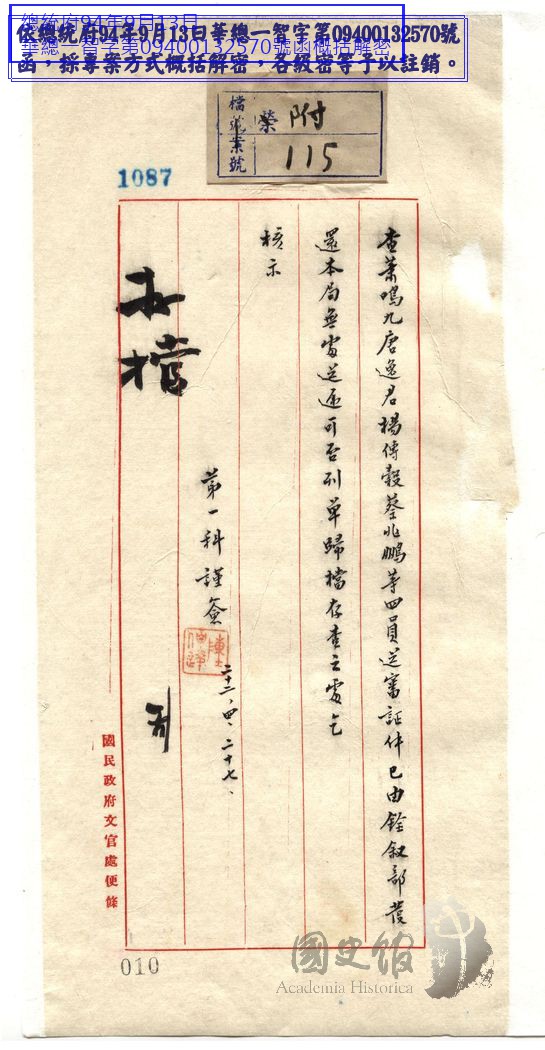 總統府94年9月13日
華總一智字第09400132570號函概括解密
依總統府94年9月13日華總一智字第09400132570號
函，採專案方式概括解密，各級密等予以註銷。
檔號
案號
附
115
1087
查蕭鳴九唐逸君楊傳穀蔡兆鵬等四員送審証件已由銓敘部發
還本局無處送還可否列單歸檔存查之處乞
核示
第一科謹簽
二十二、四、二十七、
存檔
國民政府文官處便條
010
國史館
Academia Historica